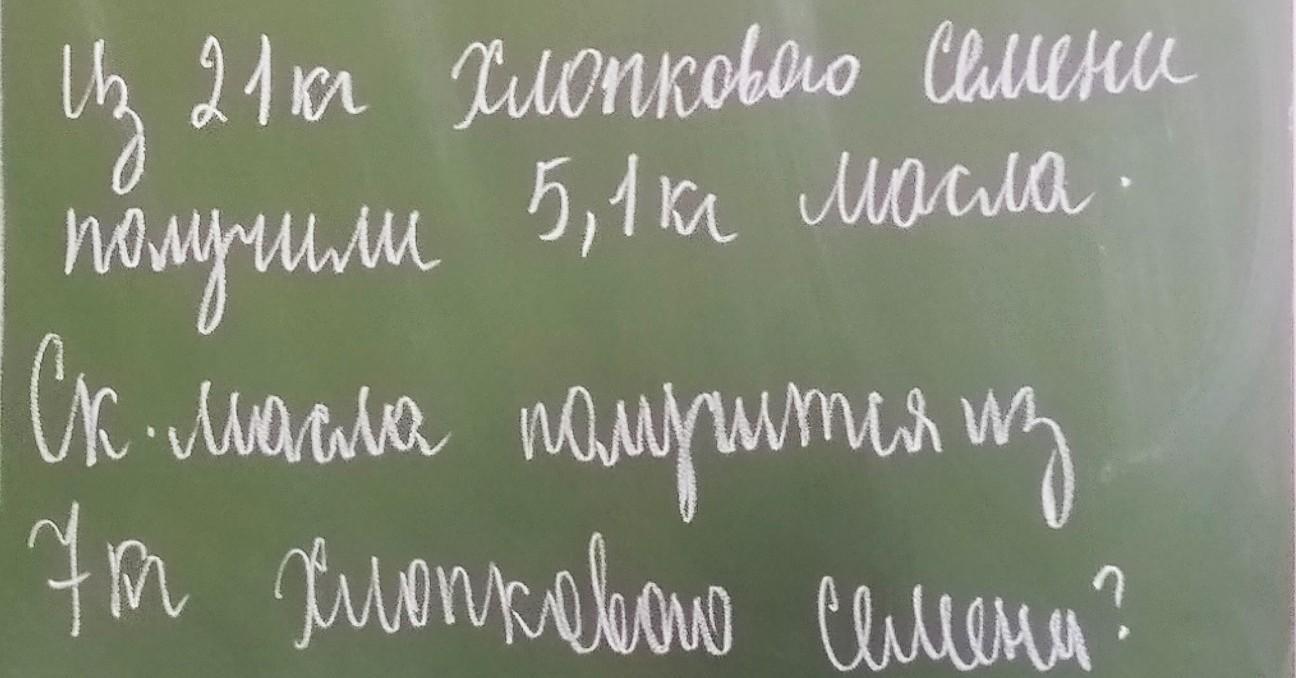 Из 21кг хлопкового семени
получили 5,1кг масла.
Ск. масла получится из
7кг хлопкового семени?